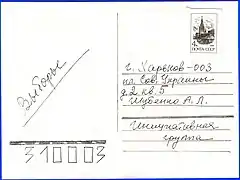 4к
ПОЧТА СССР
г. Харьков-003
ул. Сов. Украины
д. 2 кв. 5
Шубенко А. Л.
Инициативная
группа
Выборы
310003